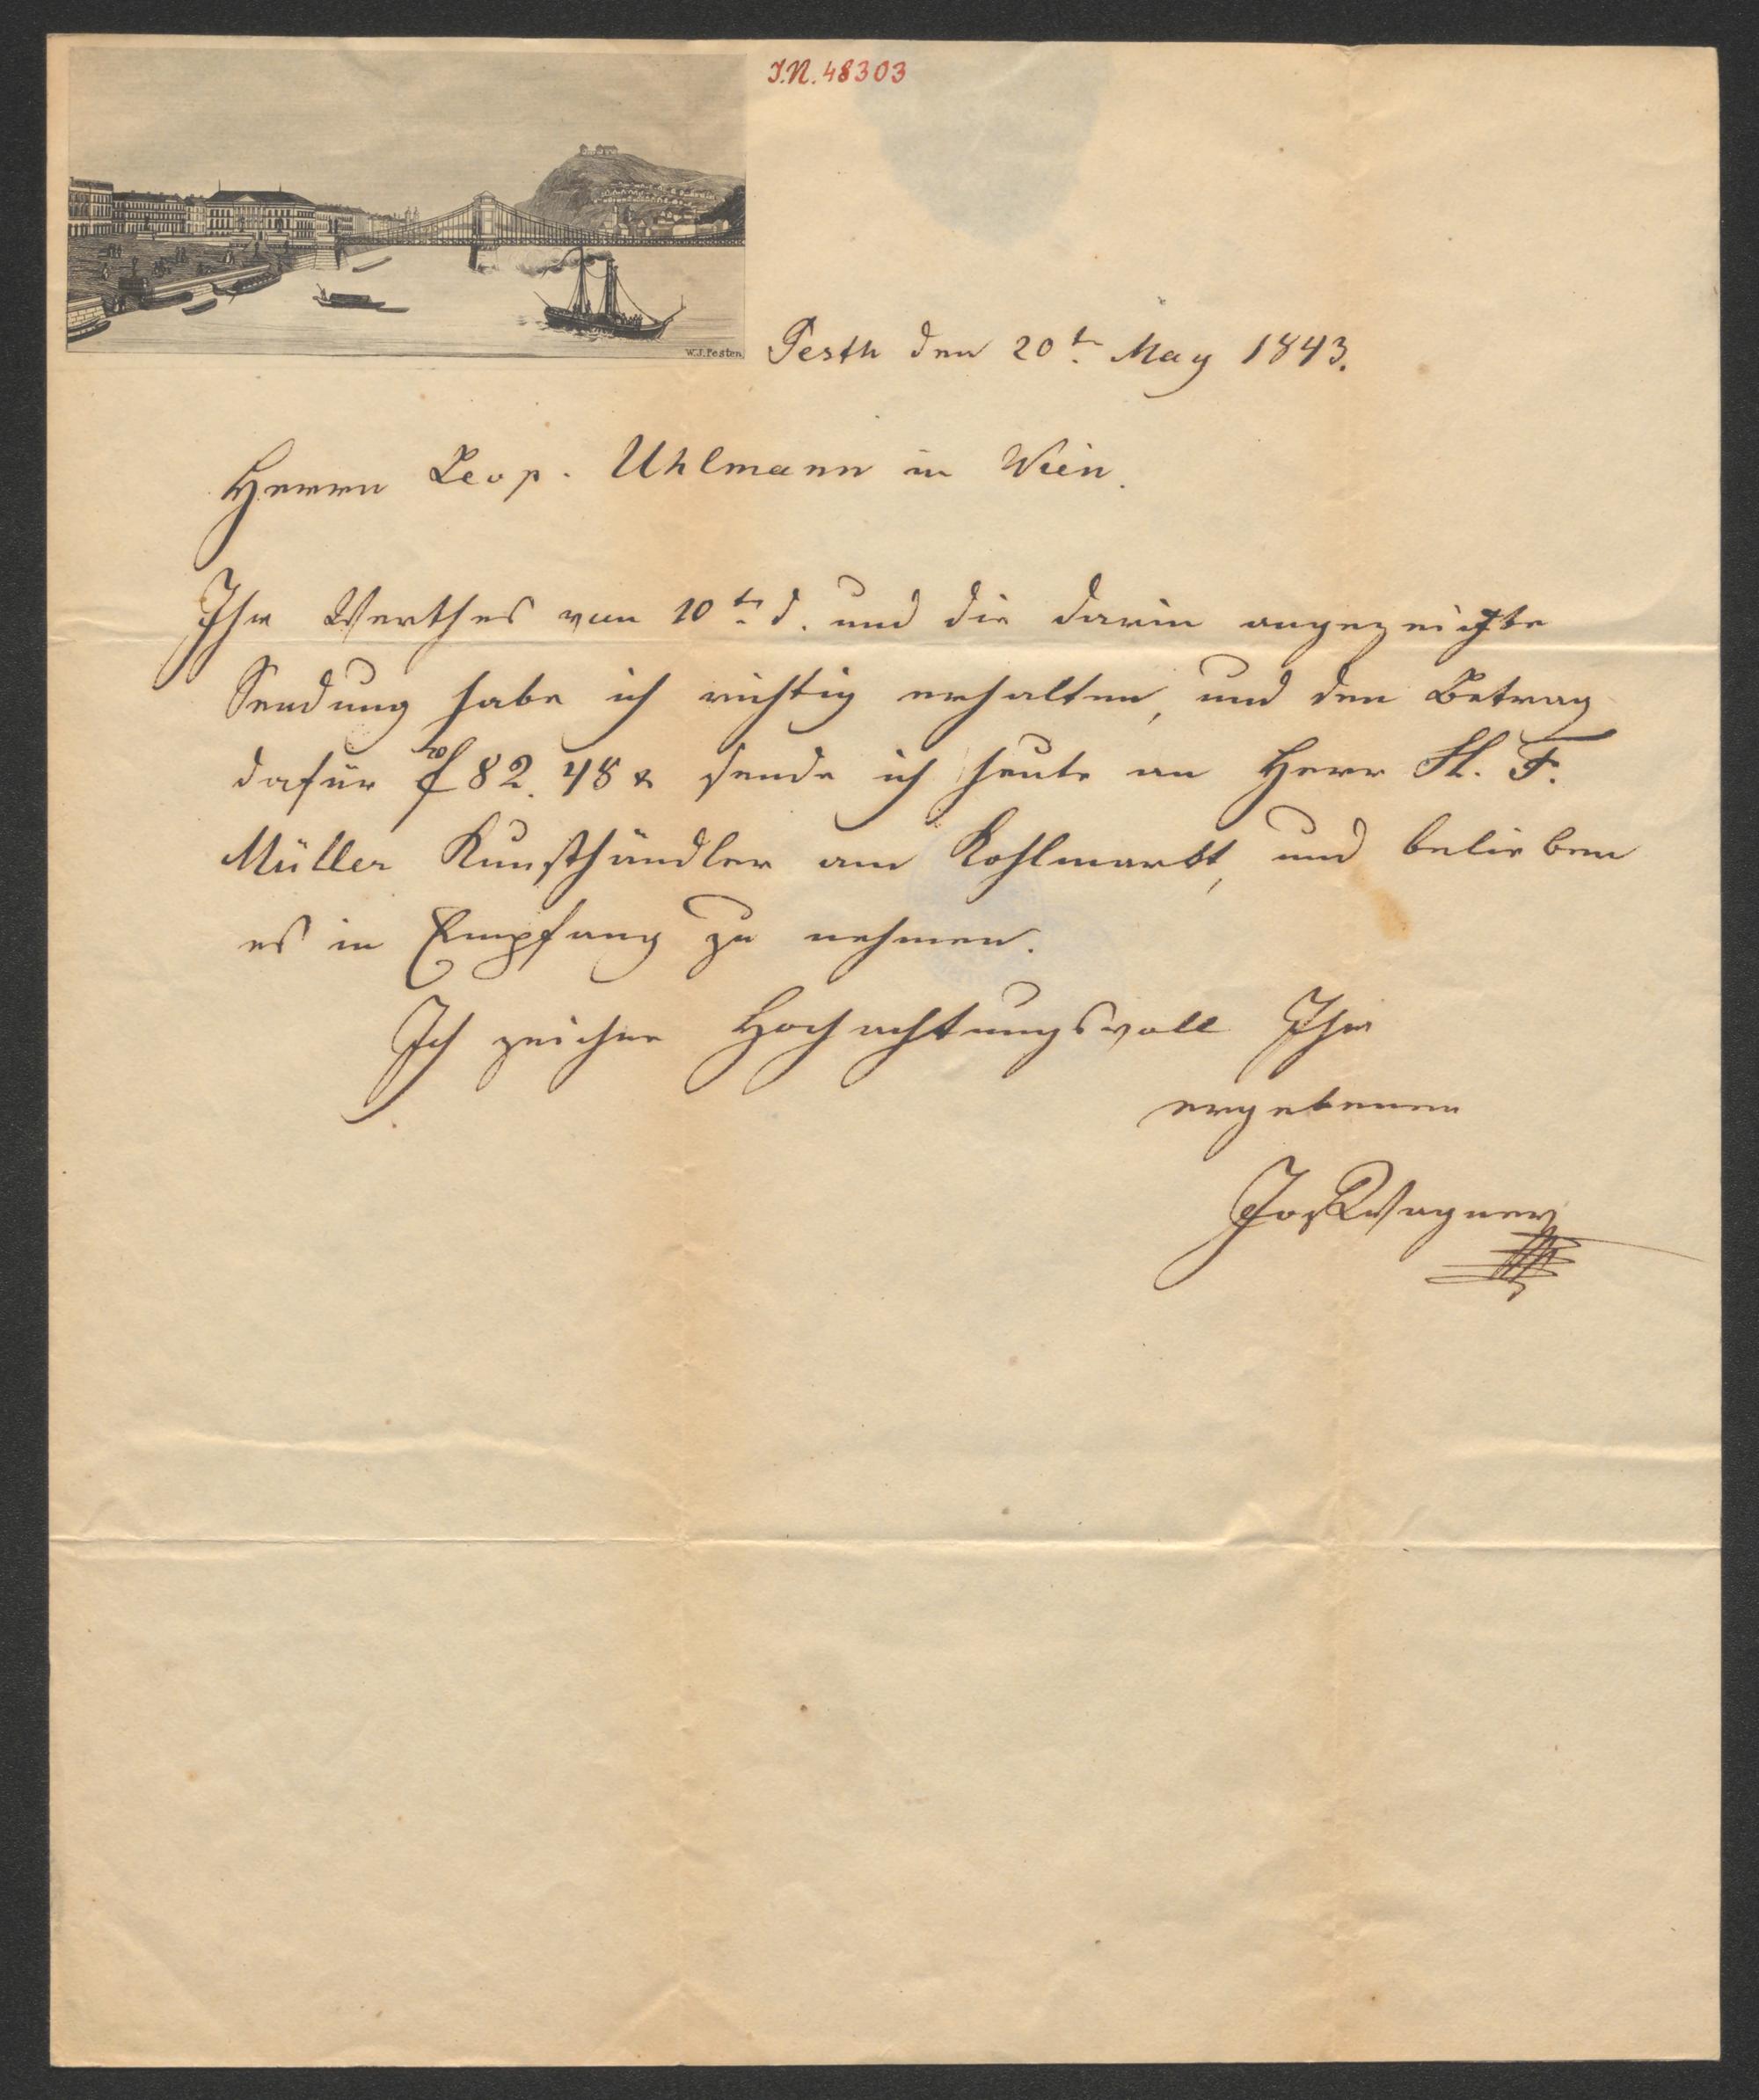 I.N. 48303
W.J. Pesten
Pesth den 20t. May 1843.
Herrn Leop. Uhlmann in Wien.
Ihr Werthes vom 10t. d. und die darin angezeigte
Sendung habe ich richtig erhalten, und den Betrag
dafür f 82. 48 x sende ich heute an Herr H. F.
Müller Kunsthändler am Kohlmarkt, und belieben
es in Empfang zu nehmen.
Ich zeichne Hochachtungsvoll Ihr
ergebener
Jos Wagner